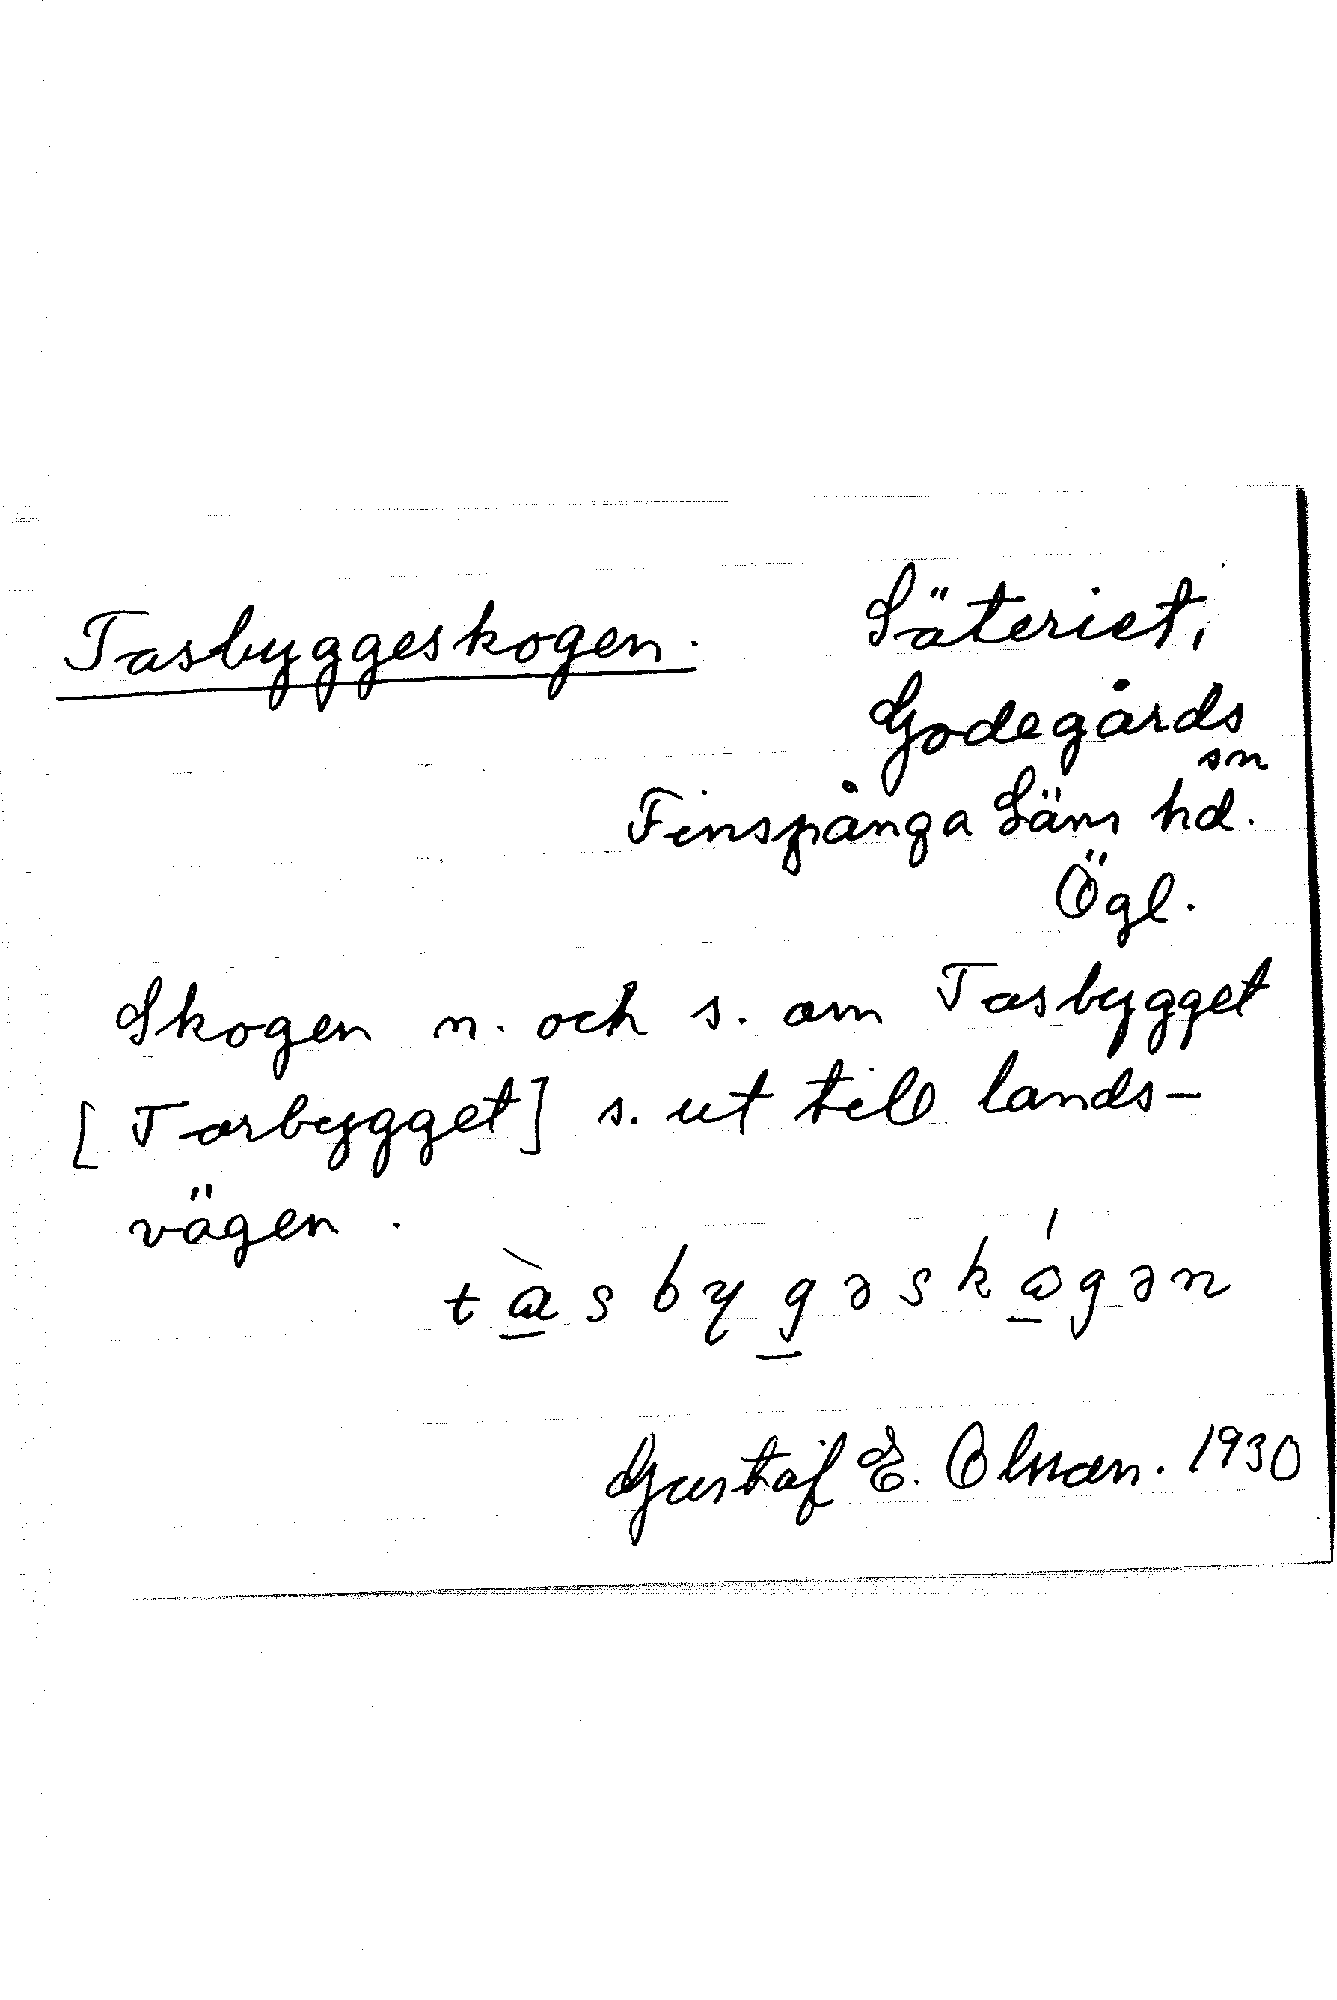 Tasbyggeskogen. Säteriet,
Godegårds
sn
Finspånga Läns hd.
Ögl.
Skogen n. och s. om Tasbygget
[Torbygget] s. ut till lands-
vägen.
tàsbygəskógən
Gustaf E. Olsson. 1930